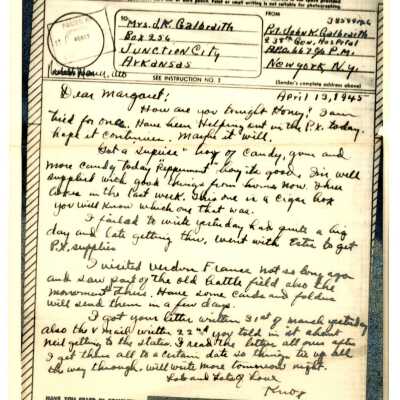 To:
Mrs. J.K. Galbraith
Box 256
Junction City
Arkansas
From
Pvt. John K. Galbraith
238th Gen. Hospital
A.P.O. P.M.
New York N.Y.
SEE INSTRUCTION NO. 2
(Sender's complete address above)
Dear Margaret; April 13, 1945
How are you tonight Honey? I am
tired for once. Have been Helping out in the P.X. today.
hope it continues. Maybe it will.
Got a suprise box of candy, gum and
more candy today Peppermint boy its good. I'm well
supplied with good things from home now. Three
boxes in the last week. This one is a cigar box
you will know which one that was.
I failed to write yesterday had quite a big
day and late getting thru, went with to get
P.X. supplies
I visited Verdun France not so long ago
and saw part of the old battle field also the
monument there. Have some cards and folders
will send them in a few days.
I got your letter written 31st of March yesterday
also the v mail written 22nd you told in it about
Neil getting to the states. I read the letters all over after
I get them all to a certain date so things tie up all
the way through. will write more tomorrow night.
Lots and Lots of Love
Knox